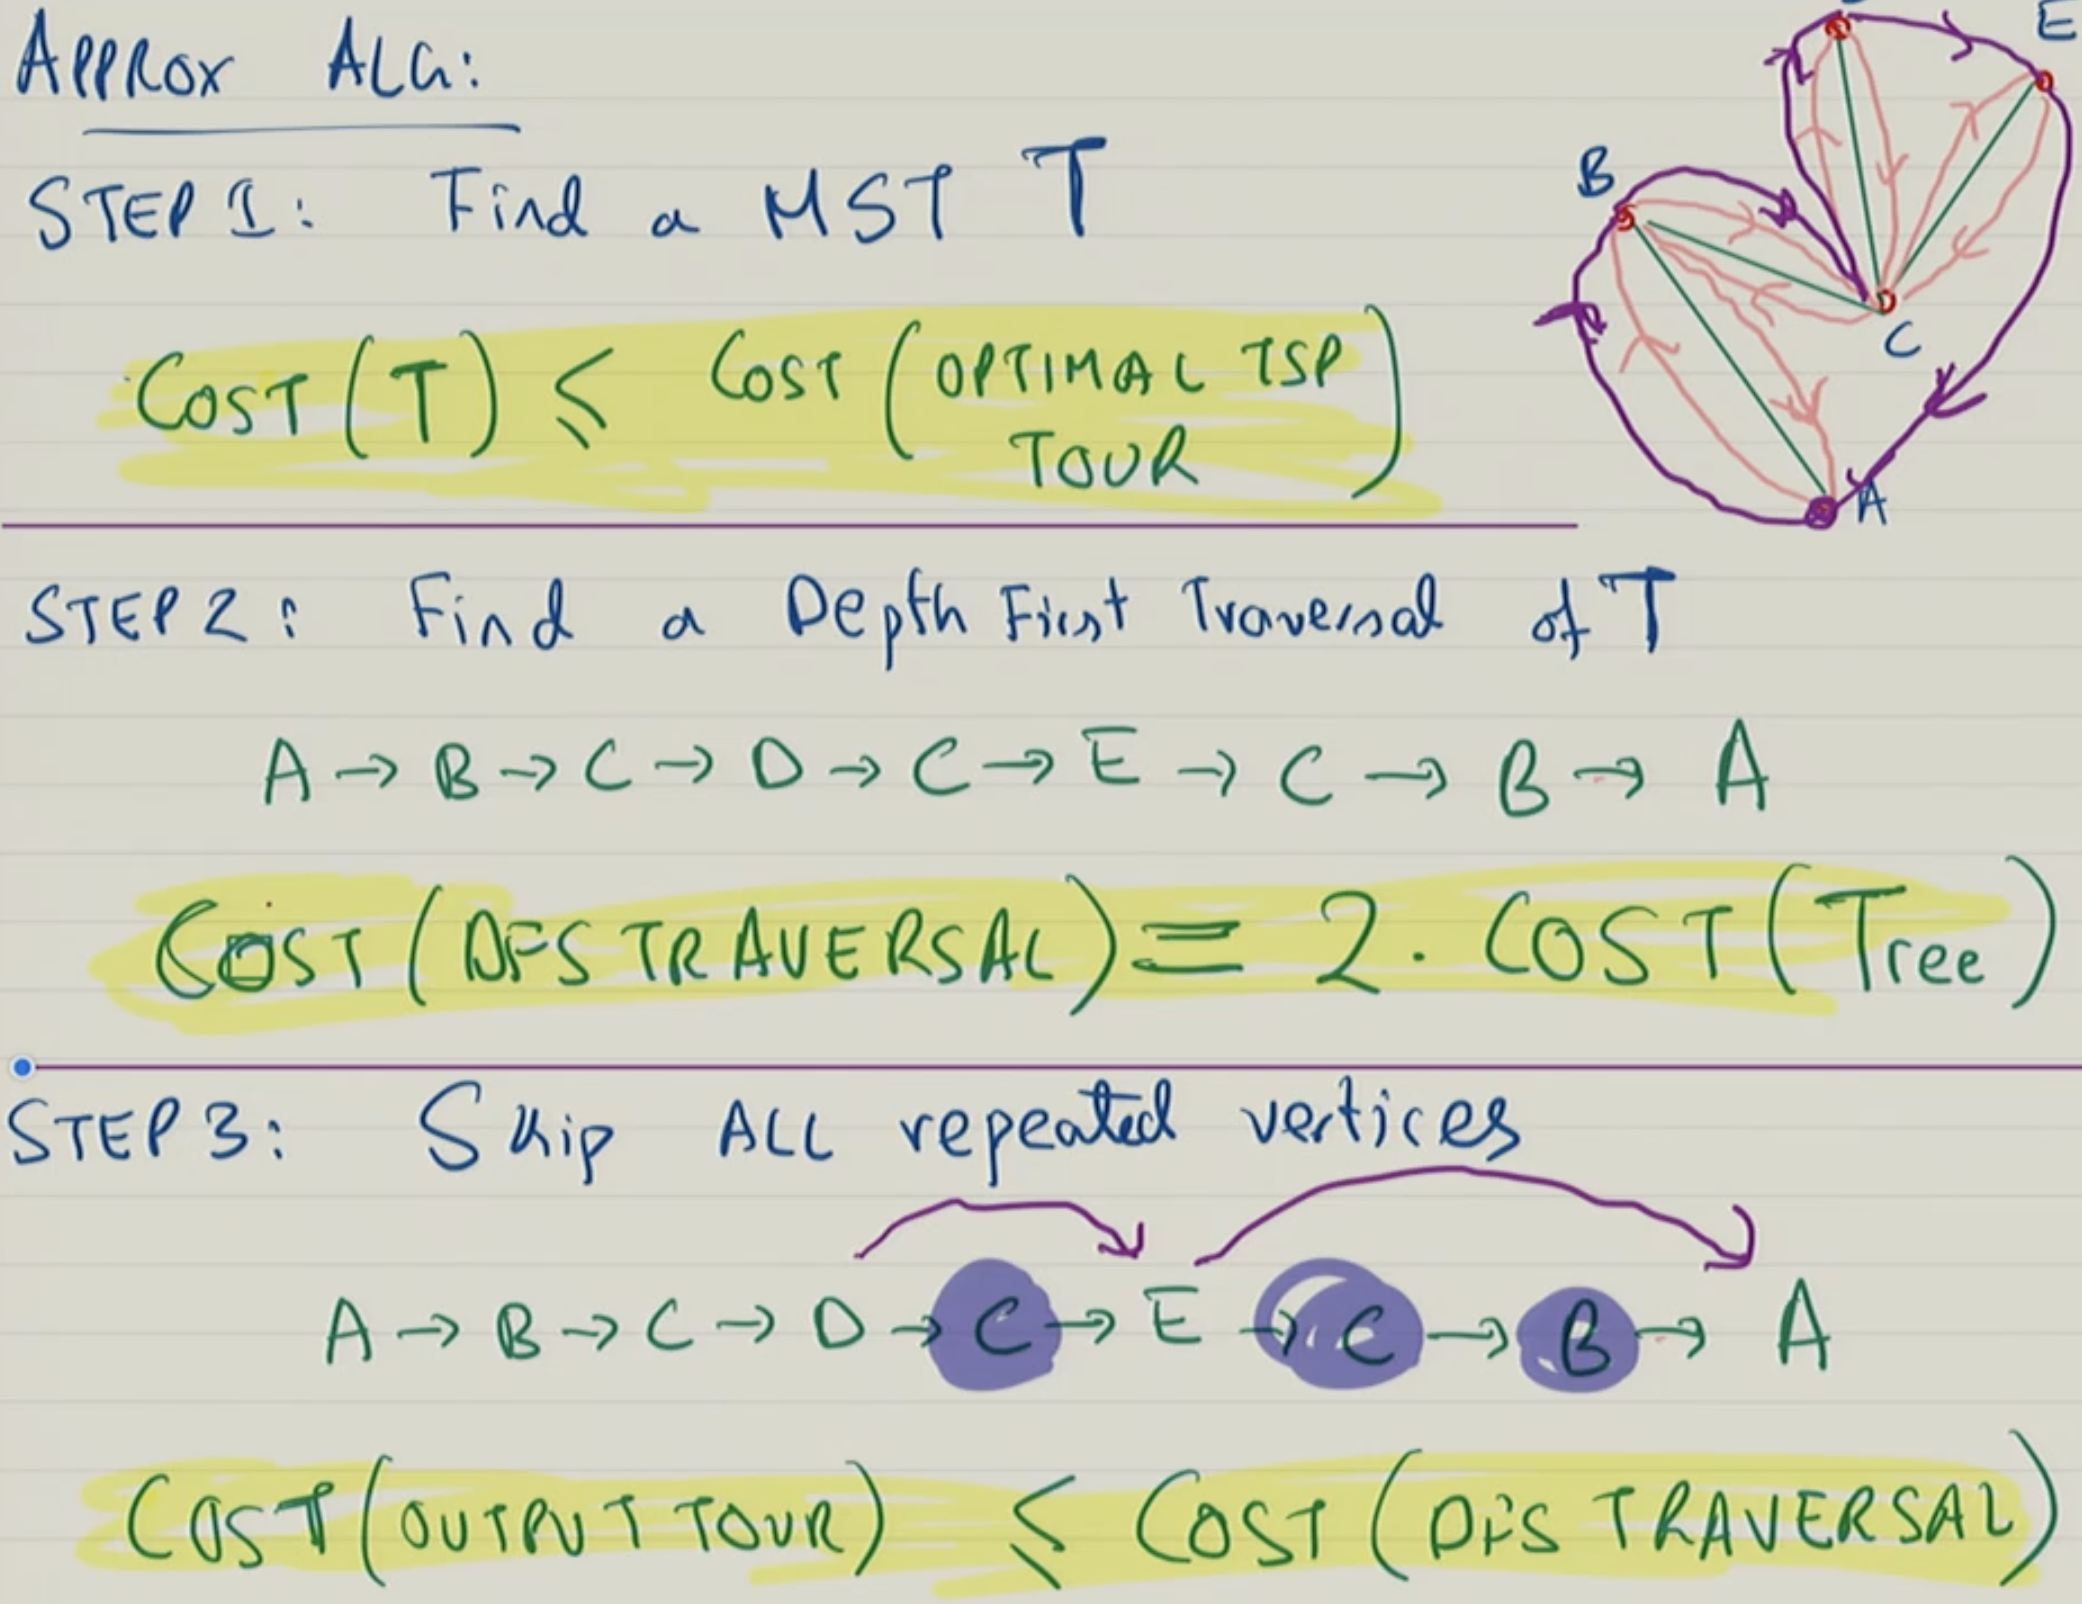 APPROX ALG:
STEP 1: Find a MST T
COST(T) ≤ COST(OPTIMAL TSP TOUR)
E
B
C
A
STEP 2: Find a Depth First Traversal of T
A → B → C → D → C → E → C → B → A
COST(DFS TRAVERSAL) = 2. COST(Tree)
STEP 3: Skip ALL repeated vertices
A → B → C → D → C → E → C → B → A
COST(OUTPUT TOUR) ≤ COST(DFS TRAVERSAL)